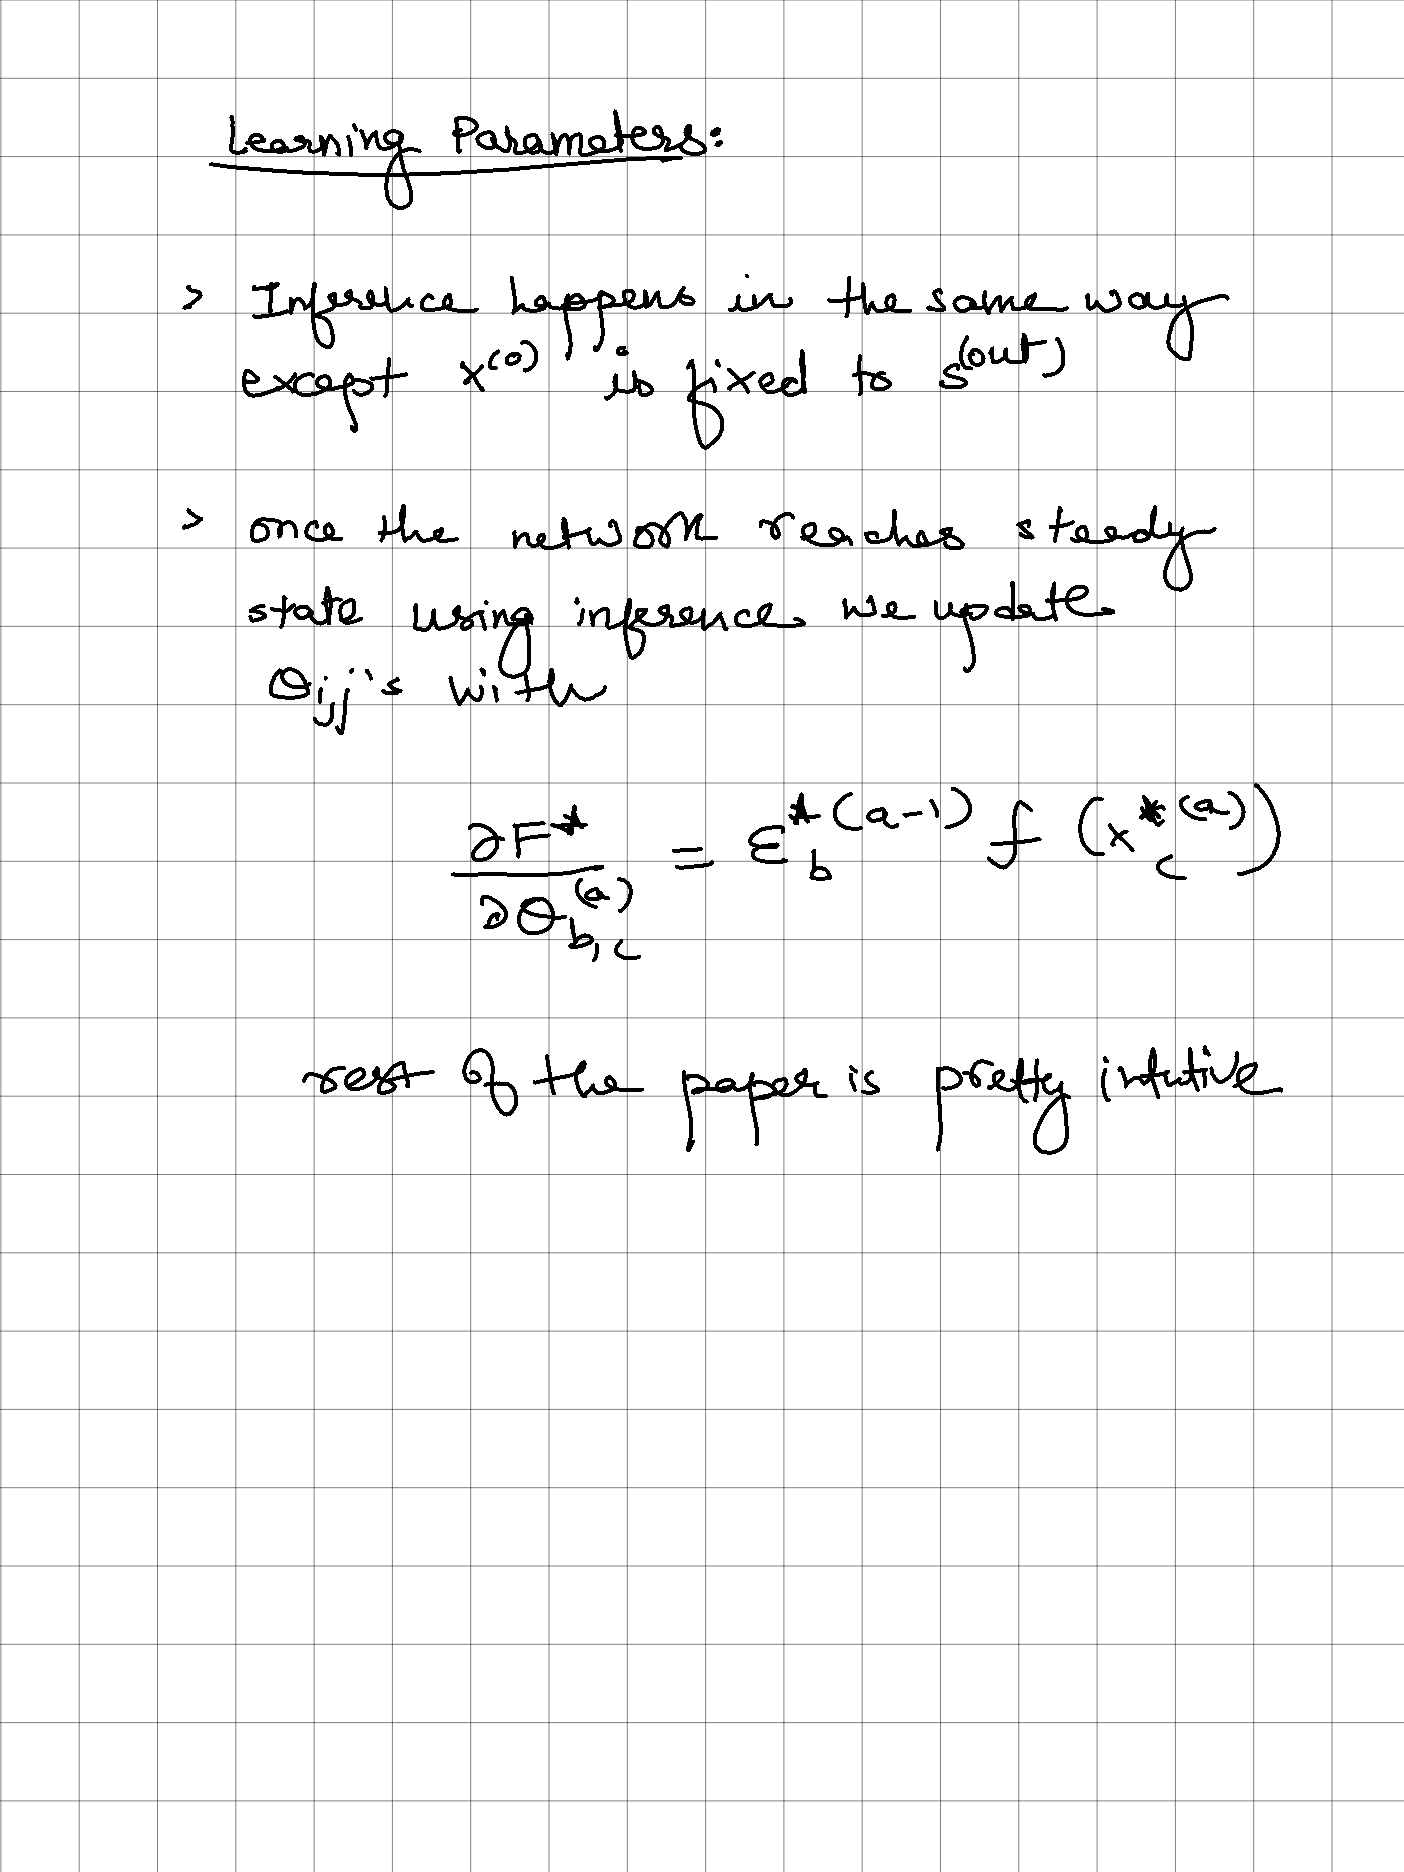 Learning Parameters:
> Inference happens in the same way
except x^(0) is fixed to s^(out)
> once the network reaches steady
state using inference we update
θ_i,j's with
∂F*/∂θ_b,c^(a) = ε_b^*(a-1) f (x_c^*(a))
rest of the paper is pretty intutive